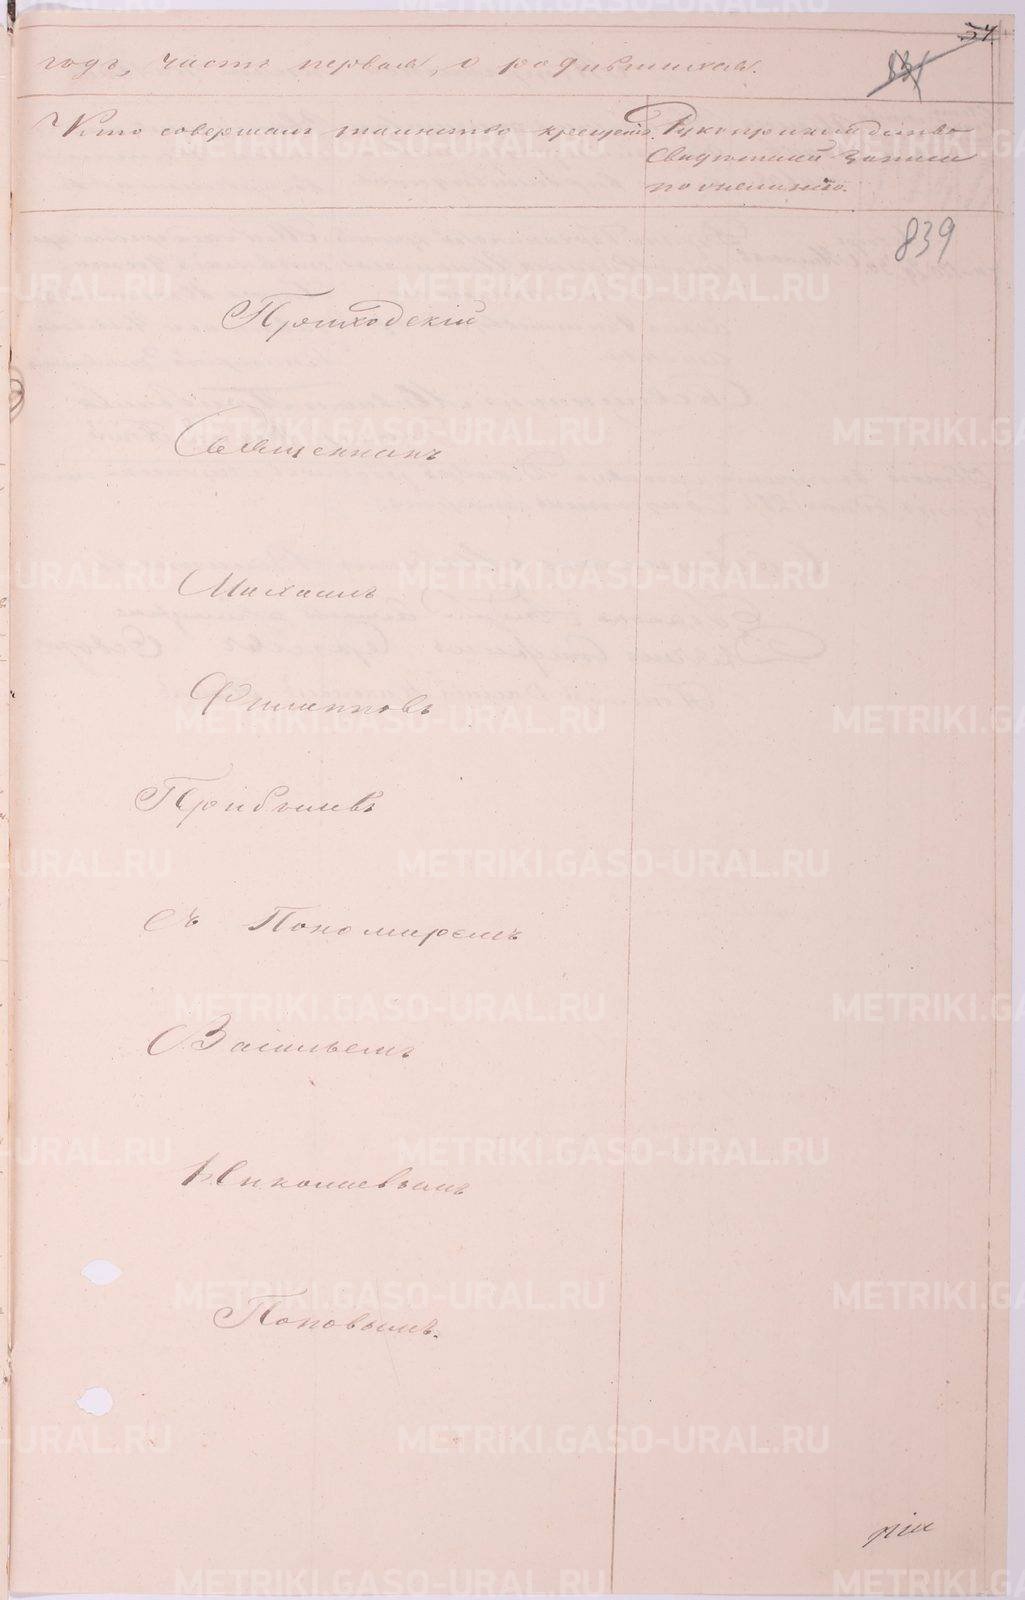 годъ, часть первая, о родившихся.
Кто совершалъ таинство крещенія.
Рукоприкладство
свидѣтелей записи
по желанію.
839
Приходскій
Священникъ
Михаилъ
Филипповъ
Прибылевъ
съ Пономаремъ
Васильемъ
Николаевымъ
Поповымъ.
METRIKI.GASO-URAL.RU